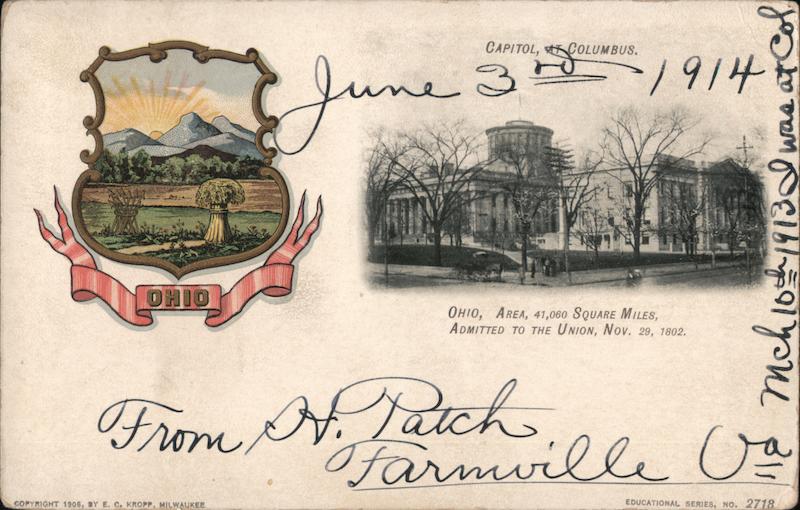 CAPITOL, AT COLUMBUS.
June 3rd 1914
OHIO
OHIO, AREA, 41,060 SQUARE MILES,
ADMITTED TO THE UNION, NOV. 29, 1802.
From H. Patch
Farmville Va
Mch 10th 1913 I was at Col
COPYRIGHT 1905, BY E. C. KROPP, MILWAUKEE
EDUCATIONAL SERIES, NO. 2718